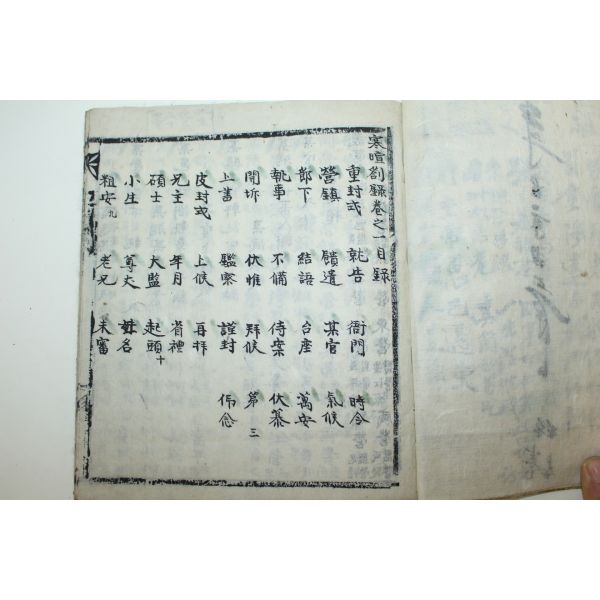 寒暄劄錄卷之一目錄
重封式 就告 衙門 時令
營鎮 饋遺 某官 氣候
節下 結語 台座 萬安
執事 不備 侍案 伏慕
開坼 伏惟 拜候 第三
上書 鑑察 謹封 伻念
皮封式 上候 再拜
兄主 年月 省禮
碩士 大監 起頭十
小生 尊丈 姓名
粗安九 老兄 未審